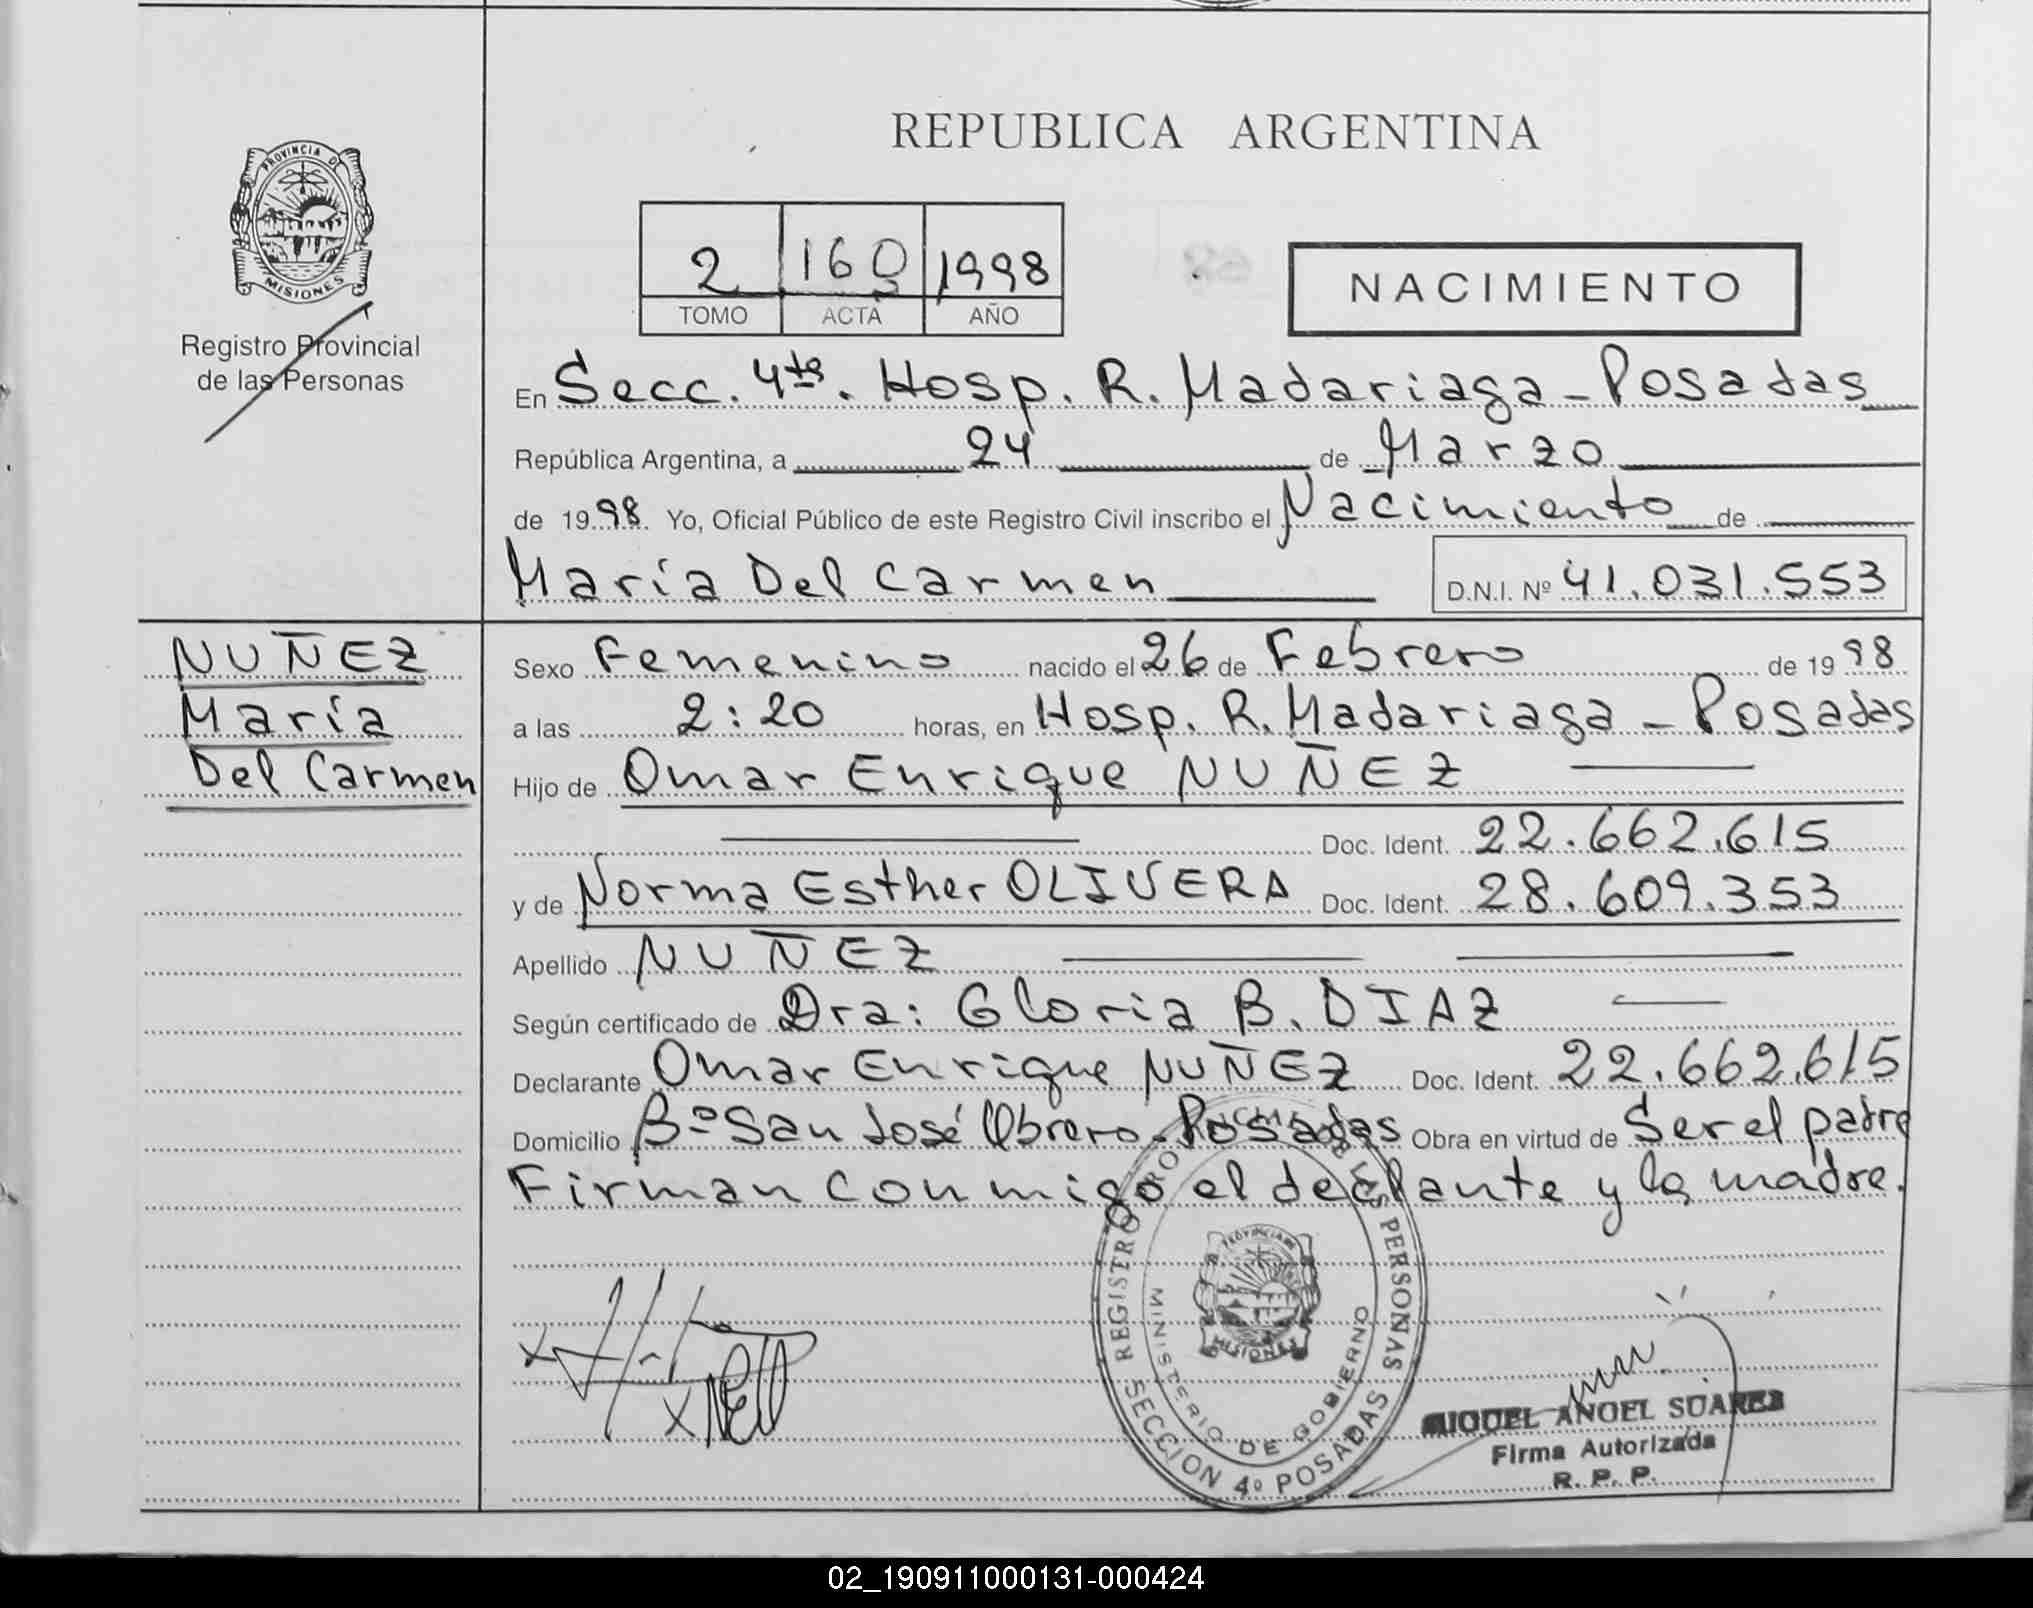 REPUBLICA ARGENTINA
PROVINCIA DE
MISIONES
Registro Provincial
de las Personas
2 160 1998
TOMO ACTA AÑO
NACIMIENTO
En Secc. 4ta. Hosp. R. Madariaga - Posadas
República Argentina, a 24 de Marzo
de 1998. Yo, Oficial Público de este Registro Civil inscribo el Nacimiento de
María Del Carmen D.N.I. Nº 41.031.553
NUÑEZ
María
Del Carmen
Sexo Femenino nacido el 26 de Febrero de 1998
a las 2:20 horas, en Hosp. R. Madariaga - Posadas
Hijo de Omar Enrique NUÑEZ
Doc. Ident. 22.662.615
y de Norma Esther OLIVERA Doc. Ident. 28.609.353
Apellido NUÑEZ
Según certificado de Dra: Gloria B. DIAZ
Declarante Omar Enrique NUÑEZ Doc. Ident. 22.662.615
Domicilio Bº San José Obrero - Posadas Obra en virtud de Ser el padre
Firman conmigo el declante y la madre.
REGISTRO PERSONAS
PROVINCIA DE
MISIONES
MINISTERIO DE GOBIERNO
SECCION 4º POSADAS
MIGUEL ANGEL SUAREZ
Firma Autorizada
R. P. P.
02_190911000131-000424